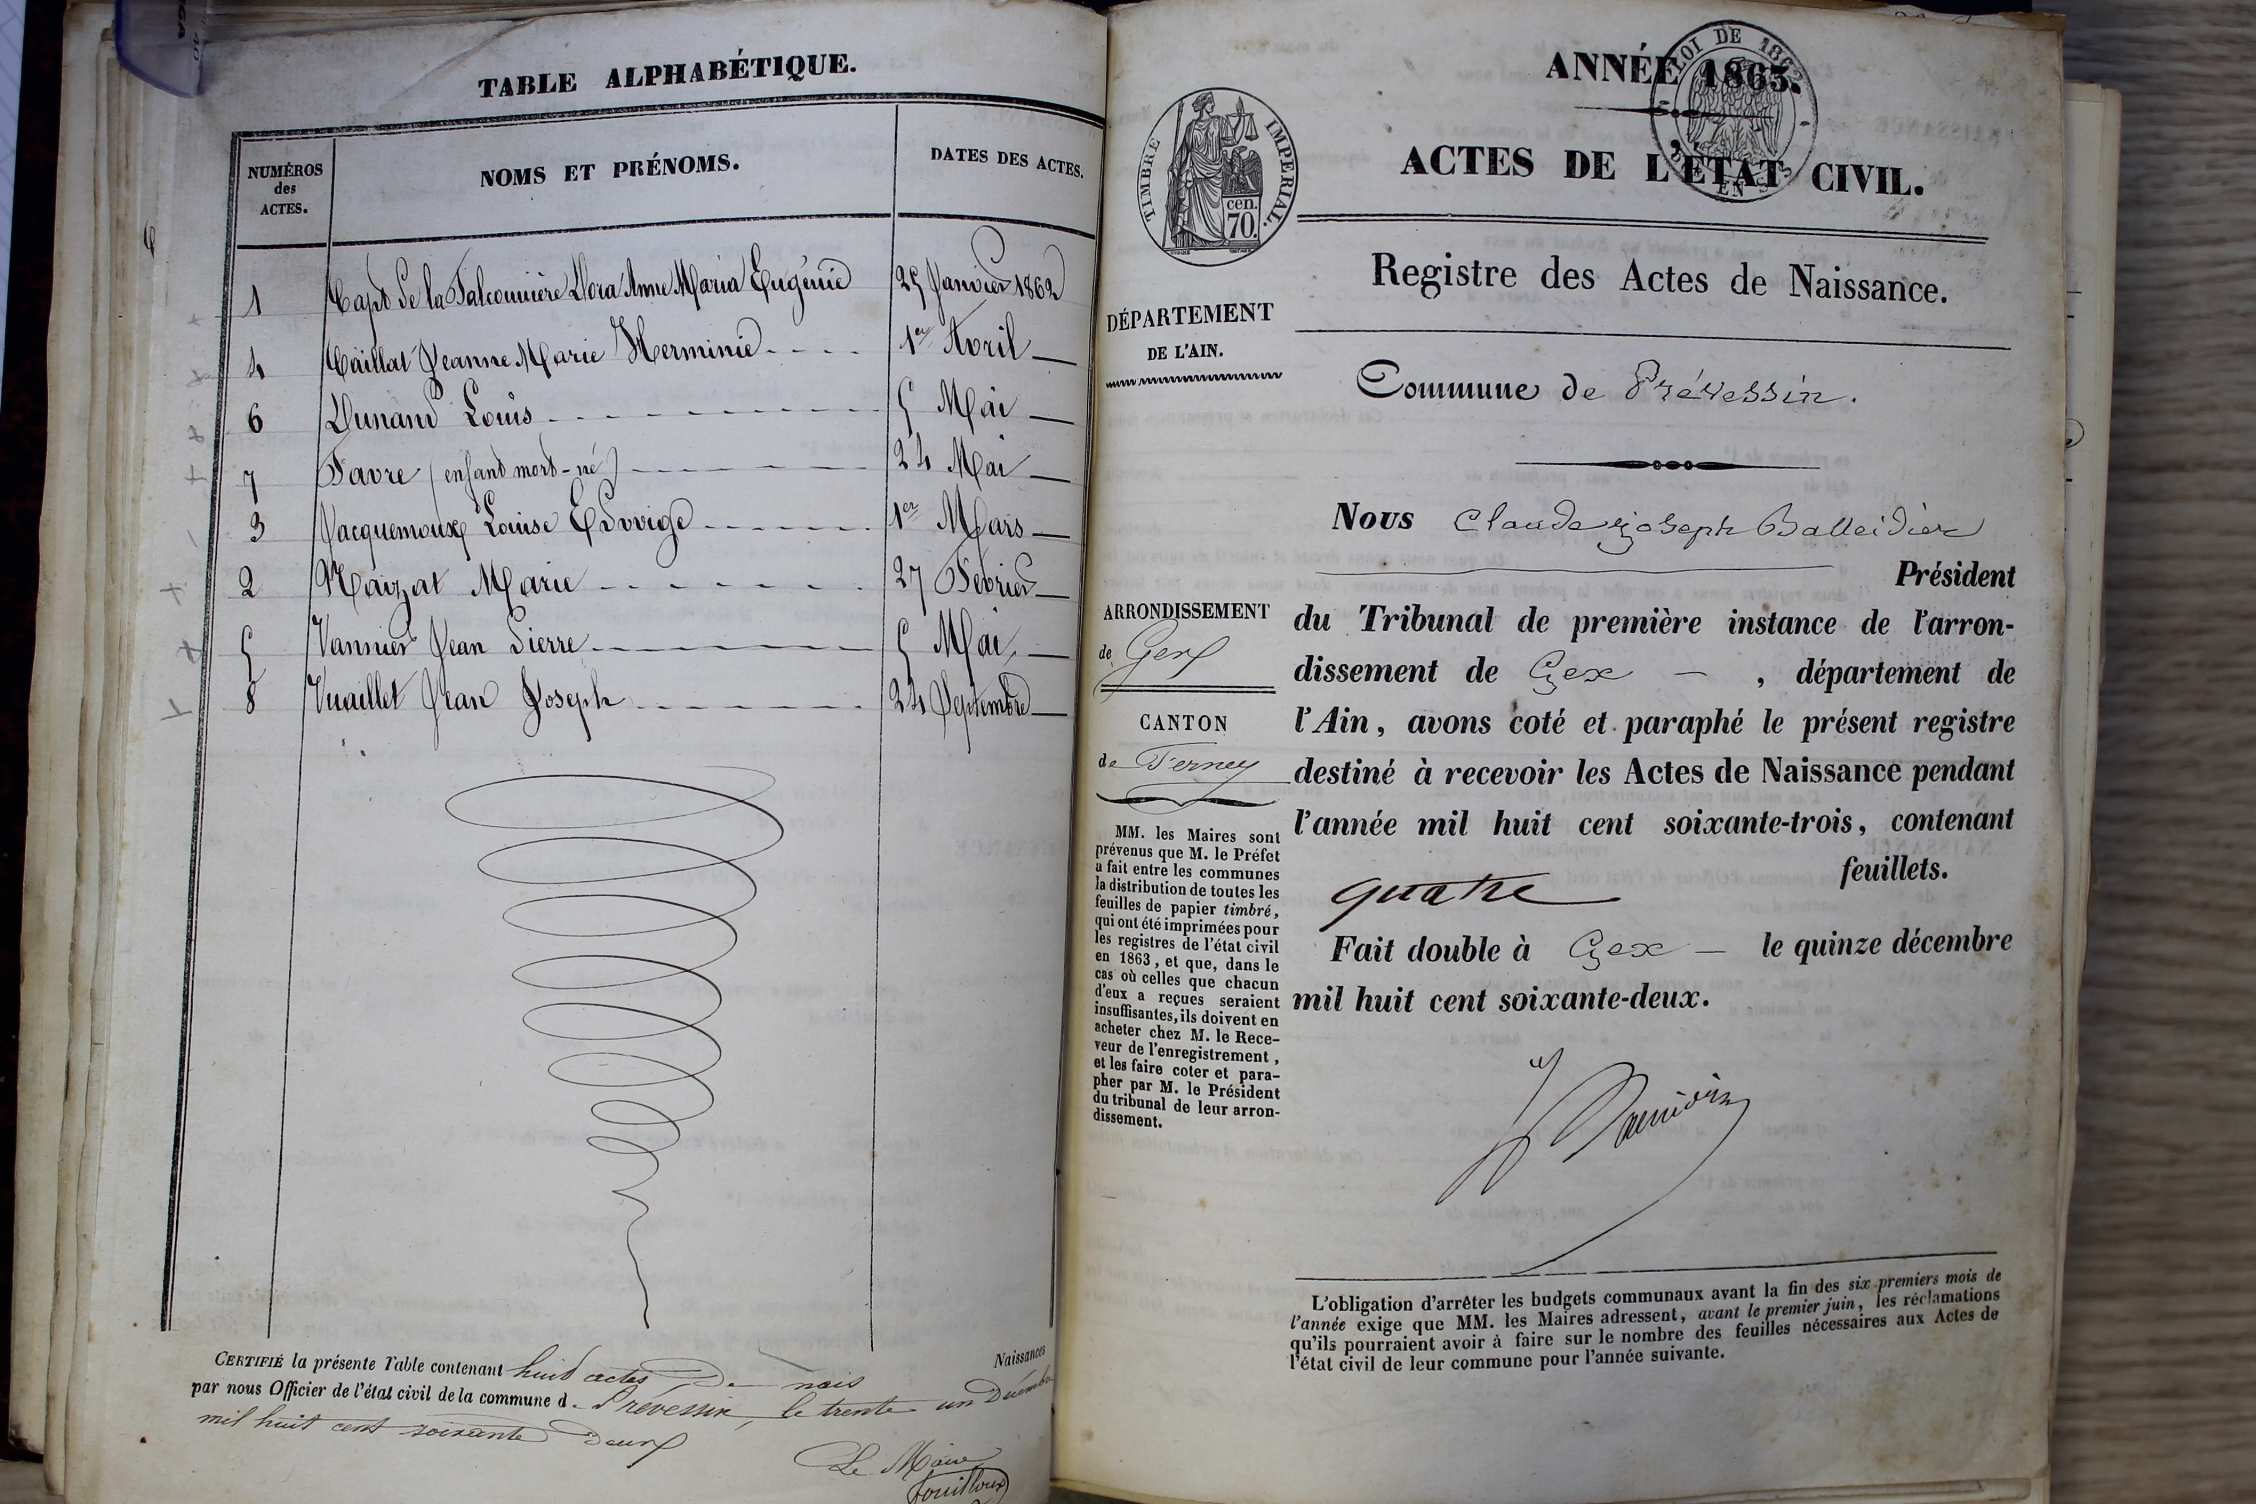 TABLE ALPHABÉTIQUE.
NUMÉROS
des
ACTES.
NOMS ET PRÉNOMS.
DATES DES ACTES.
1 Capt de la Falconnière Dora Anne Maria Eugénie 25 Janvier 1862
4 Caillat Jeanne Marie Herminie 1er Avril
6 Dunand Louis 5 Mai
7 Favre (enfant mort-né) 24 Mai
3 Jacquemoux Louise Edwige 1er Mars
2 Maizat Marie 27 Février
5 Vannier Jean Pierre 5 Mai
8 Vuaillet Jean Joseph 24 Septembre
CERTIFIÉ la présente Table contenant huit actes de nais Naissances
par nous Officier de l'état civil de la commune d. Prévessin, le trente un Décembre
mil huit cent soixante deux
Le Maire
Fouilloux
TIMBRE IMPERIAL.
cen.
70.
LOI DE 1862
EN SUS
ANNÉE 1863.
ACTES DE L'ÉTAT CIVIL.
Registre des Actes de Naissance.
DÉPARTEMENT
DE L'AIN.
Commune de Prévessin.
Nous Claude Joseph Balleidier
Président
du Tribunal de première instance de l'arron-
dissement de Gex — , département de
l'Ain, avons coté et paraphé le présent registre
destiné à recevoir les Actes de Naissance pendant
l'année mil huit cent soixante-trois, contenant
quatre feuillets.
Fait double à Gex — le quinze décembre
mil huit cent soixante-deux.
ARRONDISSEMENT
de Gex
CANTON
de Ferney
MM. les Maires sont
prévenus que M. le Préfet
a fait entre les communes
la distribution de toutes les
feuilles de papier timbré,
qui ont été imprimées pour
les registres de l'état civil
en 1863, et que, dans le
cas où celles que chacun
d'eux a reçues seraient
insuffisantes, ils doivent en
acheter chez M. le Rece-
veur de l'enregistrement,
et les faire coter et para-
pher par M. le Président
du tribunal de leur arron-
dissement.
L'obligation d'arrêter les budgets communaux avant la fin des six premiers mois de
l'année exige que MM. les Maires adressent, avant le premier juin, les réclamations
qu'ils pourraient avoir à faire sur le nombre des feuilles nécessaires aux Actes de
l'état civil de leur commune pour l'année suivante.